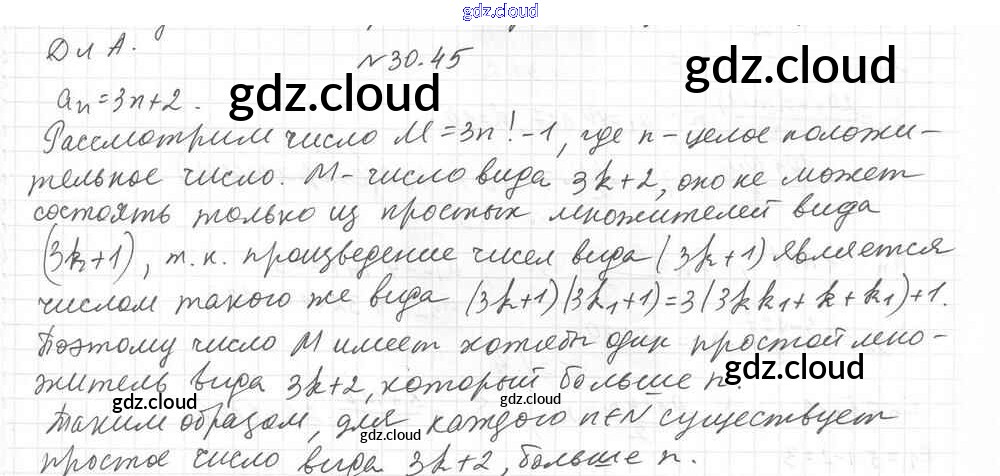 gdz.cloud
Дл А.
№30.45
gdz.cloud
aₙ=3n+2.
gdz.cloud
Рассмотрим число M=3n!-1, где n-целое положи-
тельное число. M-число вида 3k+2, оно не может
состоять только из простых множителей вида
(3k+1), т.к. произведение чисел вида (3k+1) является
числом такого же вида (3k+1)(3k₁+1)=3(3kk₁+k+k₁)+1.
Поэтому число M имеет хотябы один простой мно-
gdz.cloud
житель вида 3k+2, который больше n.
gdz.cloud
Таким образом, для каждого n∈N существует
gdz.cloud
простое число вида 3k+2, больше n.